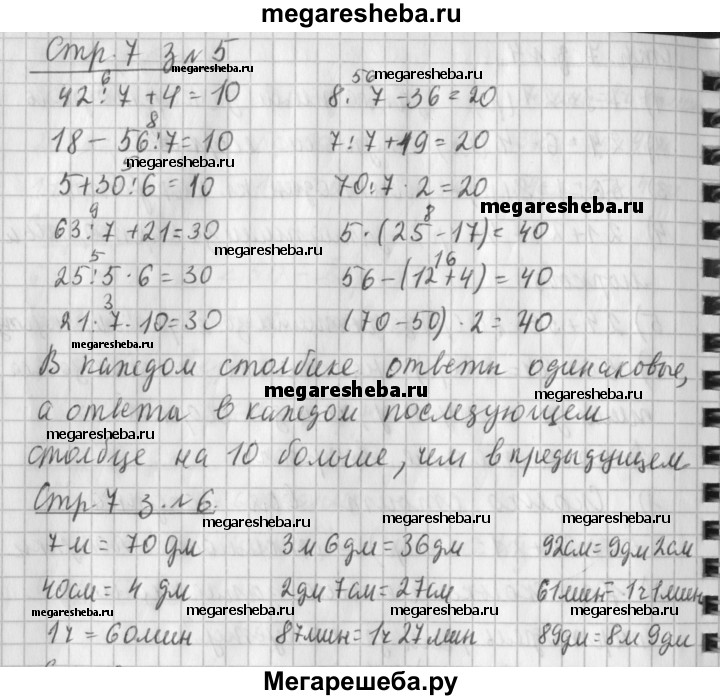 megaresheba.ru
Стр. 7 з. № 5
megaresheba.ru megaresheba.ru
6 56
42 : 7 + 4 = 10 8 · 7 - 36 = 20
megaresheba.ru
8
18 - 56 : 7 = 10 7 : 7 + 19 = 20
megaresheba.ru
5
5 + 30 : 6 = 10 70 : 7 · 2 = 20
megaresheba.ru
9 8
63 : 7 + 21 = 30 5 · (25 - 17) = 40
megaresheba.ru
5 16
25 : 5 · 6 = 30 56 - (12 + 4) = 40
3
21 : 7 · 10 = 30 (70 - 50) · 2 = 40
megaresheba.ru megaresheba.ru
В каждом столбике ответы одинаковые,
megaresheba.ru
а ответы в каждом последующем
megaresheba.ru megaresheba.ru
столбце на 10 больше, чем в предыдущем
Стр. 7 з. № 6.
megaresheba.ru megaresheba.ru megaresheba.ru
7 м = 70 дм 3 м 6 дм = 36 дм 92 см = 9 дм 2 см
40 см = 4 дм 2 дм 7 см = 27 см 61 мин = 1 ч 1 мин
megaresheba.ru megaresheba.ru megaresheba.ru
1 ч = 60 мин 87 мин = 1 ч 27 мин 89 дм = 8 м 9 дм
Мегарешеба.ру